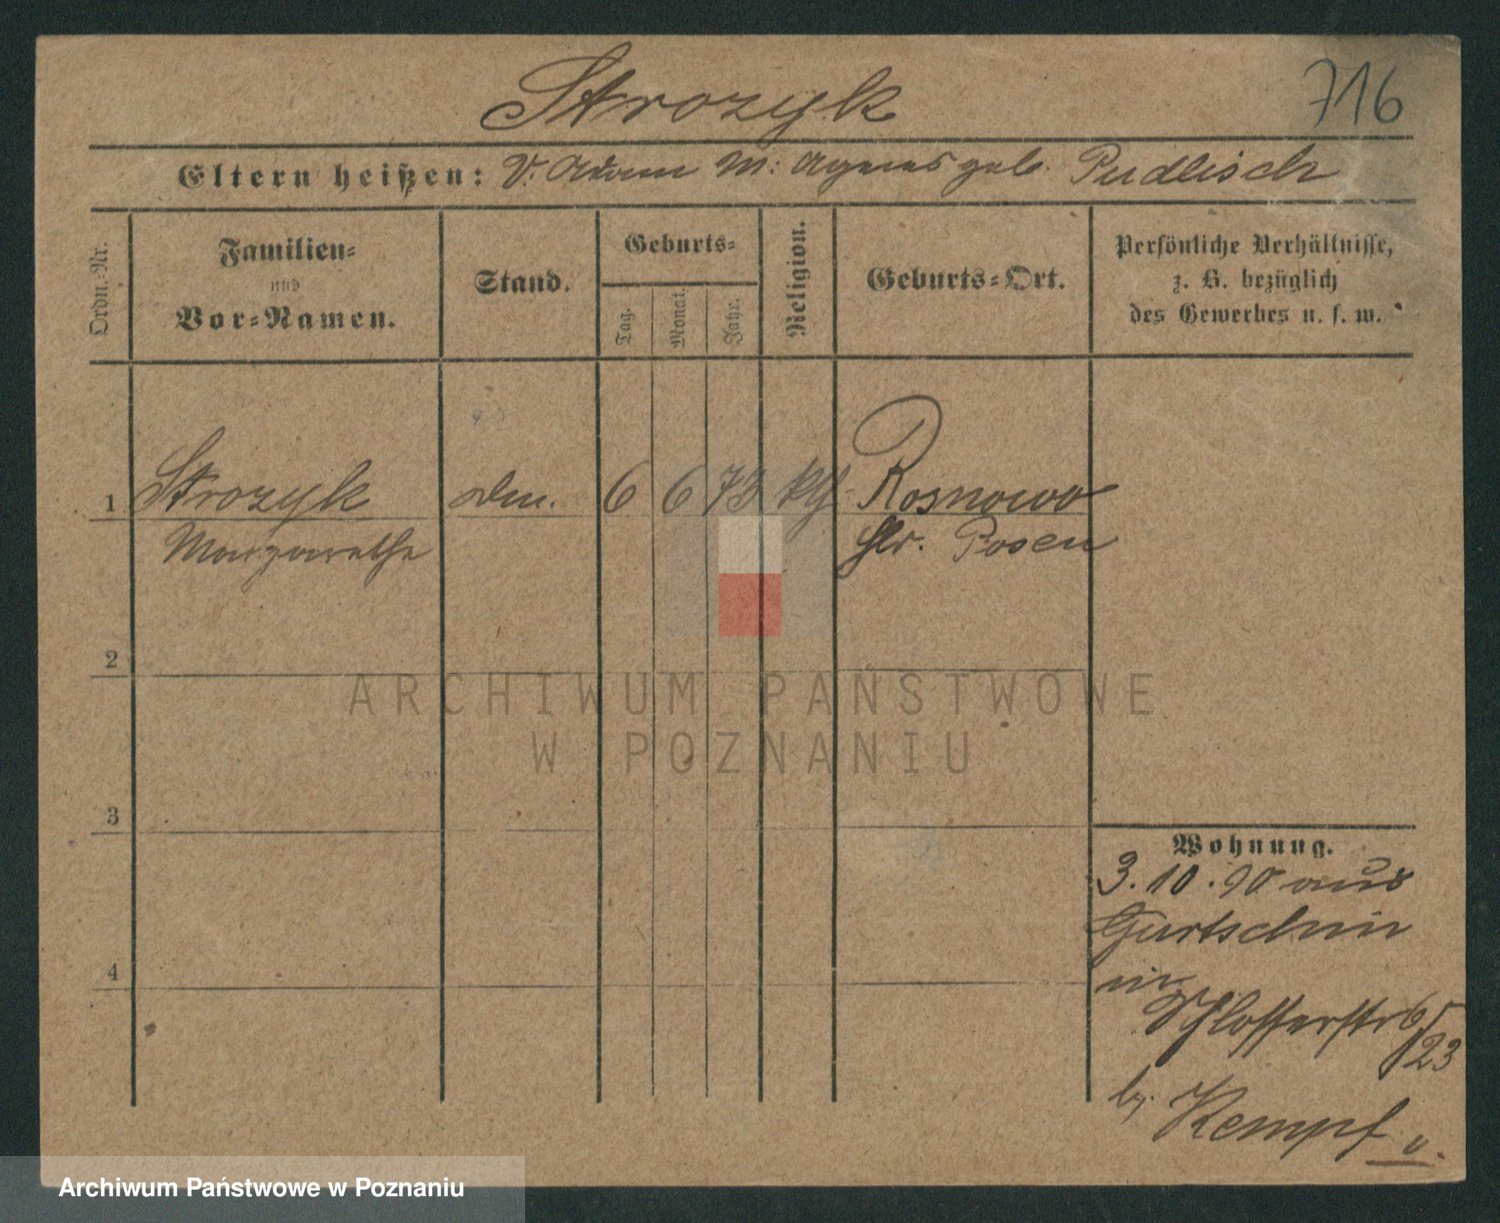 Strozyk
716
Eltern heißen: V. Adam M: Agnes geb. Pudlisch
Ordn.-Nr.
Familien-
und
Vor-Namen.
Stand.
Geburts-
Tag.
Monat.
Jahr.
Religion.
Geburts-Ort.
Persönliche Verhältnisse,
z. B. bezüglich
des Gewerbes u. s. w.
1 Strozyk 6 6 73 kth Rosnowo
Margarethe Kr. Posen
2
3
4
Wohnung.
3.10.90 aus
Gurtschin
in
Schlosserstr 6/23
by. Kempf
ARCHIWUM PAŃSTWOWE
W POZNANIU
Archiwum Państwowe w Poznaniu